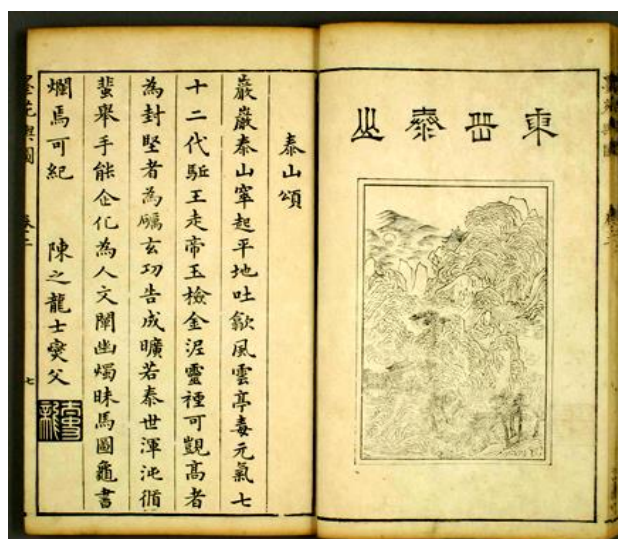 東岳泰山
泰山頌
巖巖泰山窣起平地吐歙風雲亭毒元氣七
十二代駈王走帝玉檢金泥靈禋可覬高者
為封堅者為礪玄功告成曠若泰世渾沌循
蜚舉手能企化為人文闡幽燭昧馬圖龜書
爛焉可紀 陳之龍士奕父
七